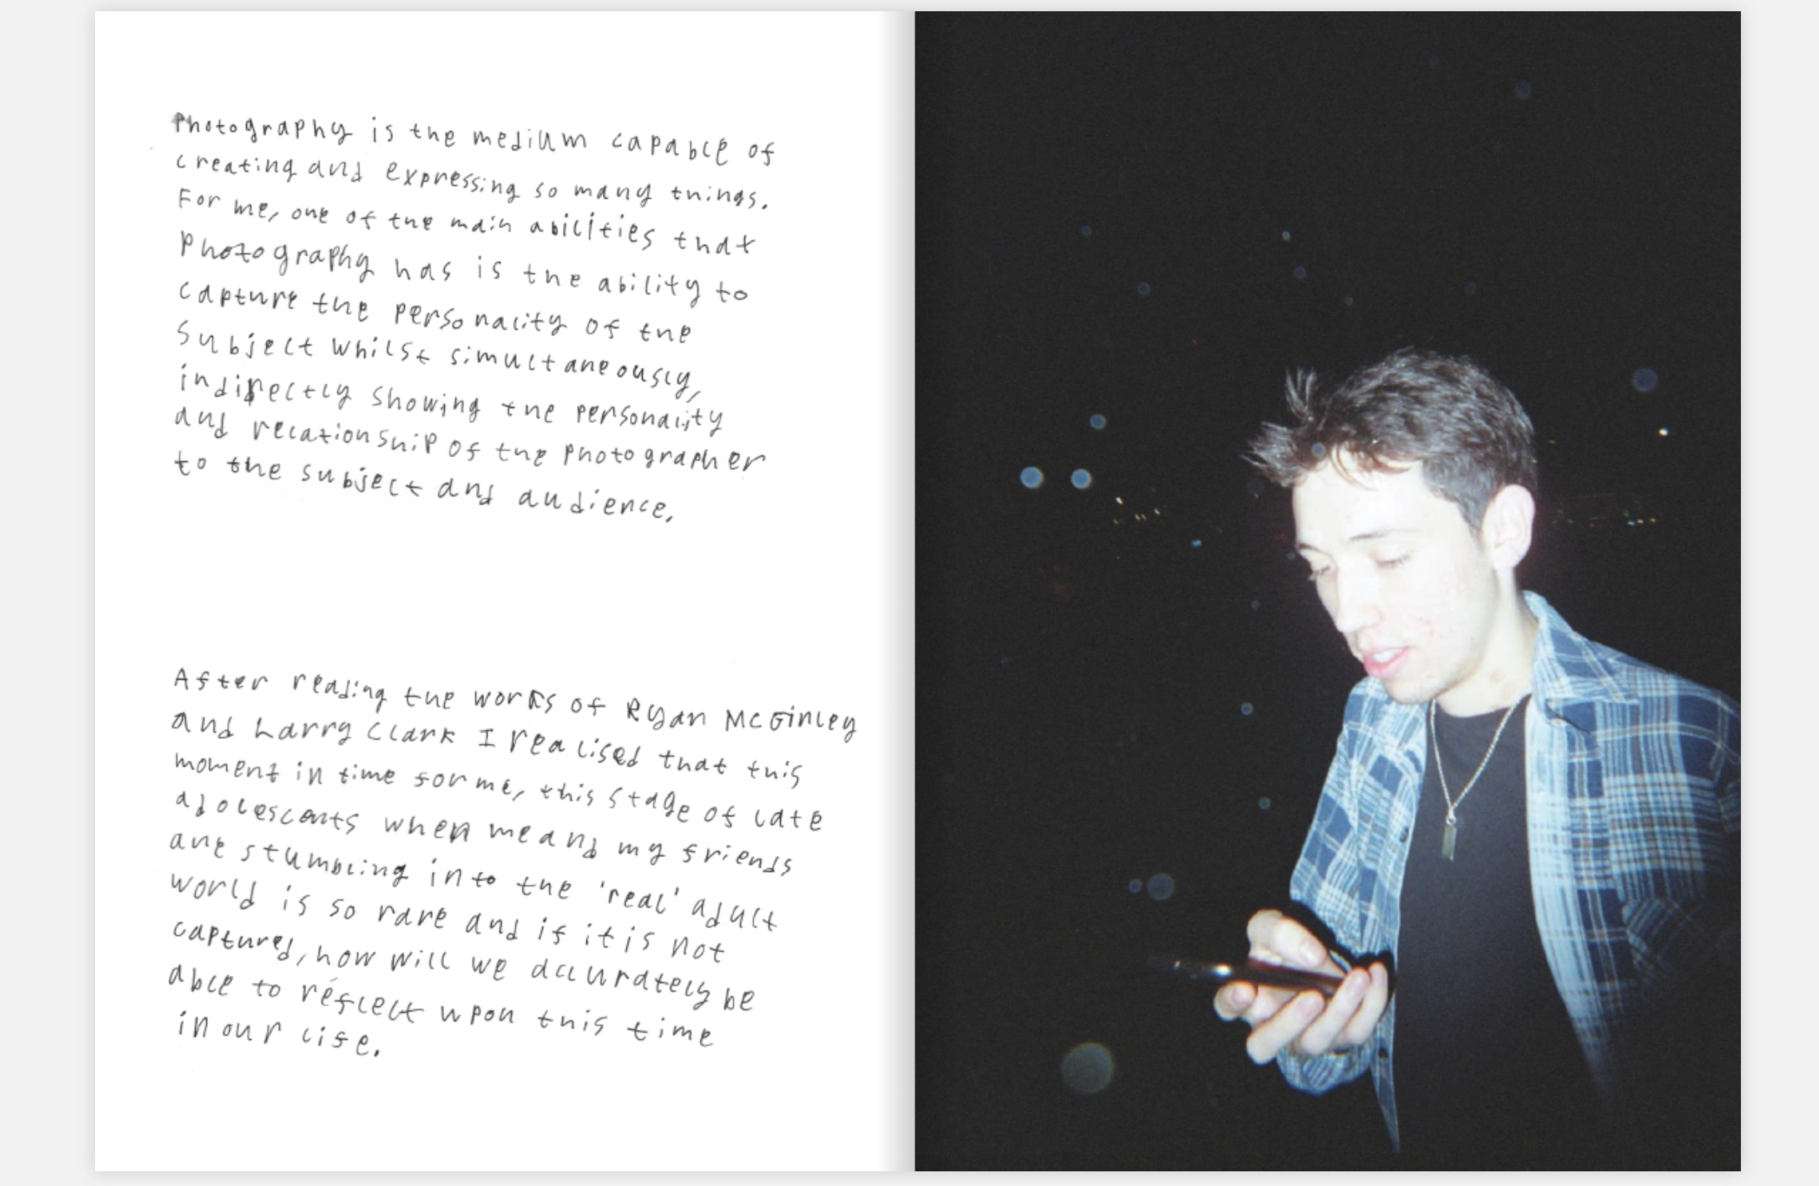 Photography is the medium capable of
creating and expressing so many things.
For me, one of the main abilities that
Photography has is the ability to
capture the personality of the
Subject whilst simultaneously,
indirectly showing the personality
and relationship of the photographer
to the subject and audience.
After reading the works of Ryan McGinley
and Larry Clark I realised that this
moment in time for me, this stage of late
adolescents when me and my friends
are stumbling into the 'real' adult
world is so rare and if it is not
captured, how will we accurately be
able to reflect upon this time
in our life.